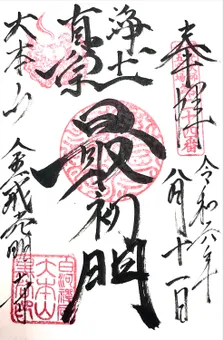 奉拝
令和六年
八月十一日
浄土
真宗
最初門
大本山
金戒光明寺
大本山